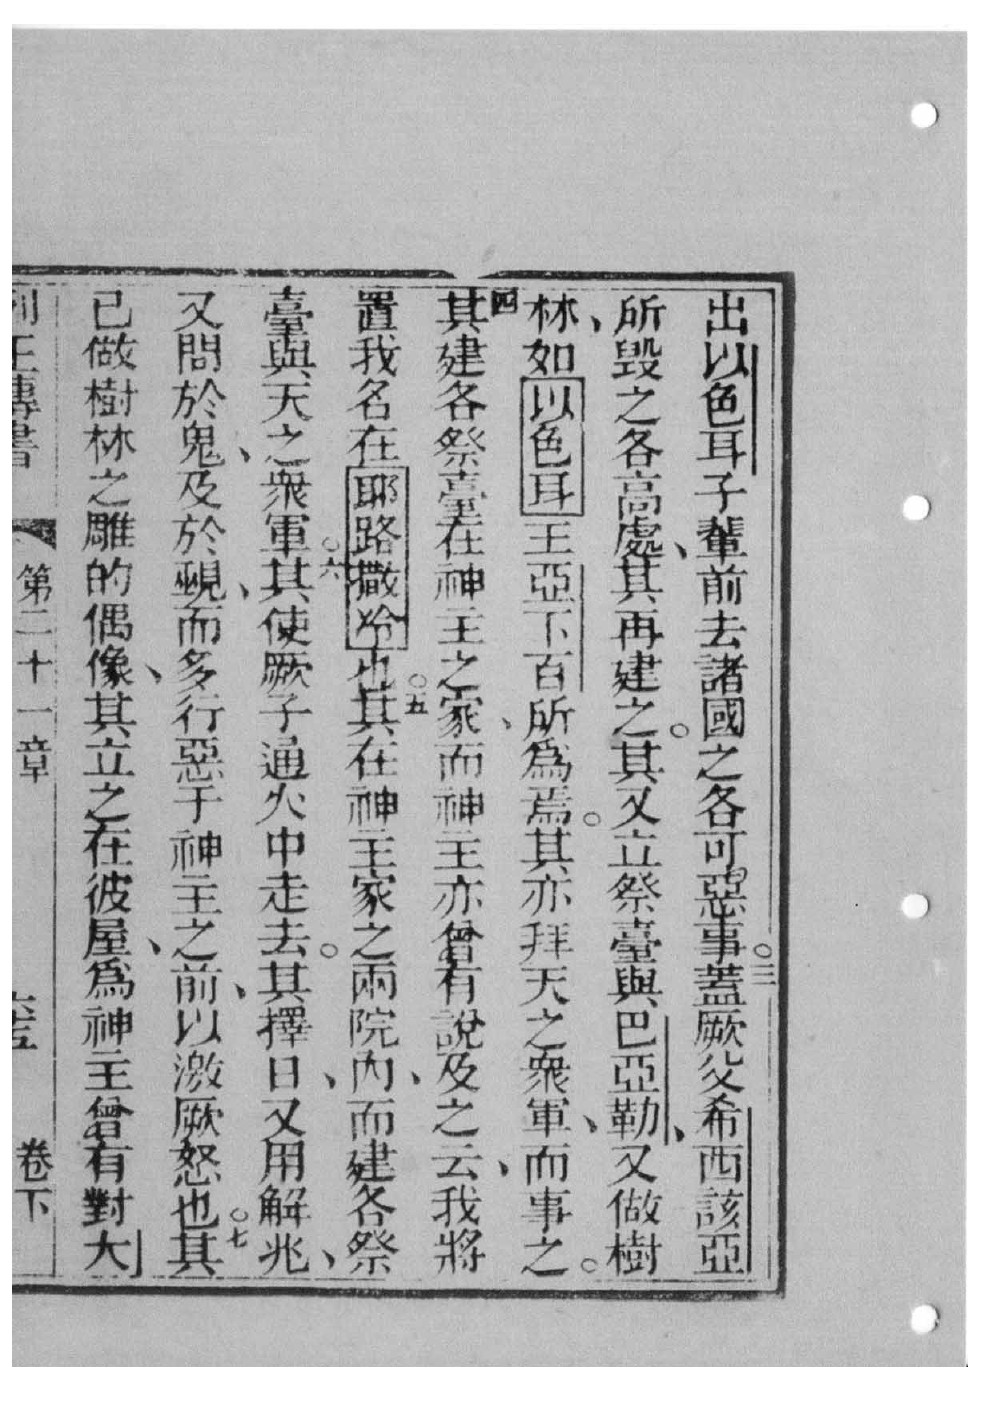 出以色耳子輩前去諸國之各可惡事○三蓋厥父希西該亞
所毀之各高處、其再建之。其又立祭臺與巴亞勒、又做樹
林、如以色耳王亞下百所爲焉。其亦拜天之衆軍、而事之。
四其建各祭臺在神主之家、而神主亦曾有說及之云、我將
置我名在耶路撒冷也○五其在神主家之兩院內、而建各祭
臺與天之衆軍○六其使厥子通火中走去。其擇日、又用解兆、
又問於鬼、及於覡、而多行惡于神主之前、以激厥怒也○七其
已做樹林之雕的偶像、其立之在彼屋、爲神主曾有對大
列王傳書 第二十一章 卷下